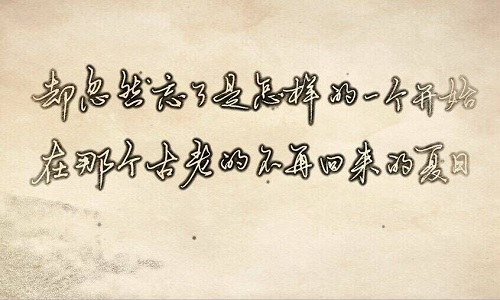 却忽然忘了是怎样的一个开始
在那个古老的不再回来的夏日